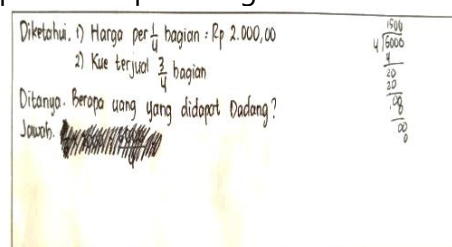 Diketahui. 1) Harga per 1/4 bagian : Rp 2.000,00
2) Kue terjual 3/4 bagian
Ditanya. Berapa uang yang didapat Dadang?
Jawab.
1500
4 √6000
4
20
20
00
00
0